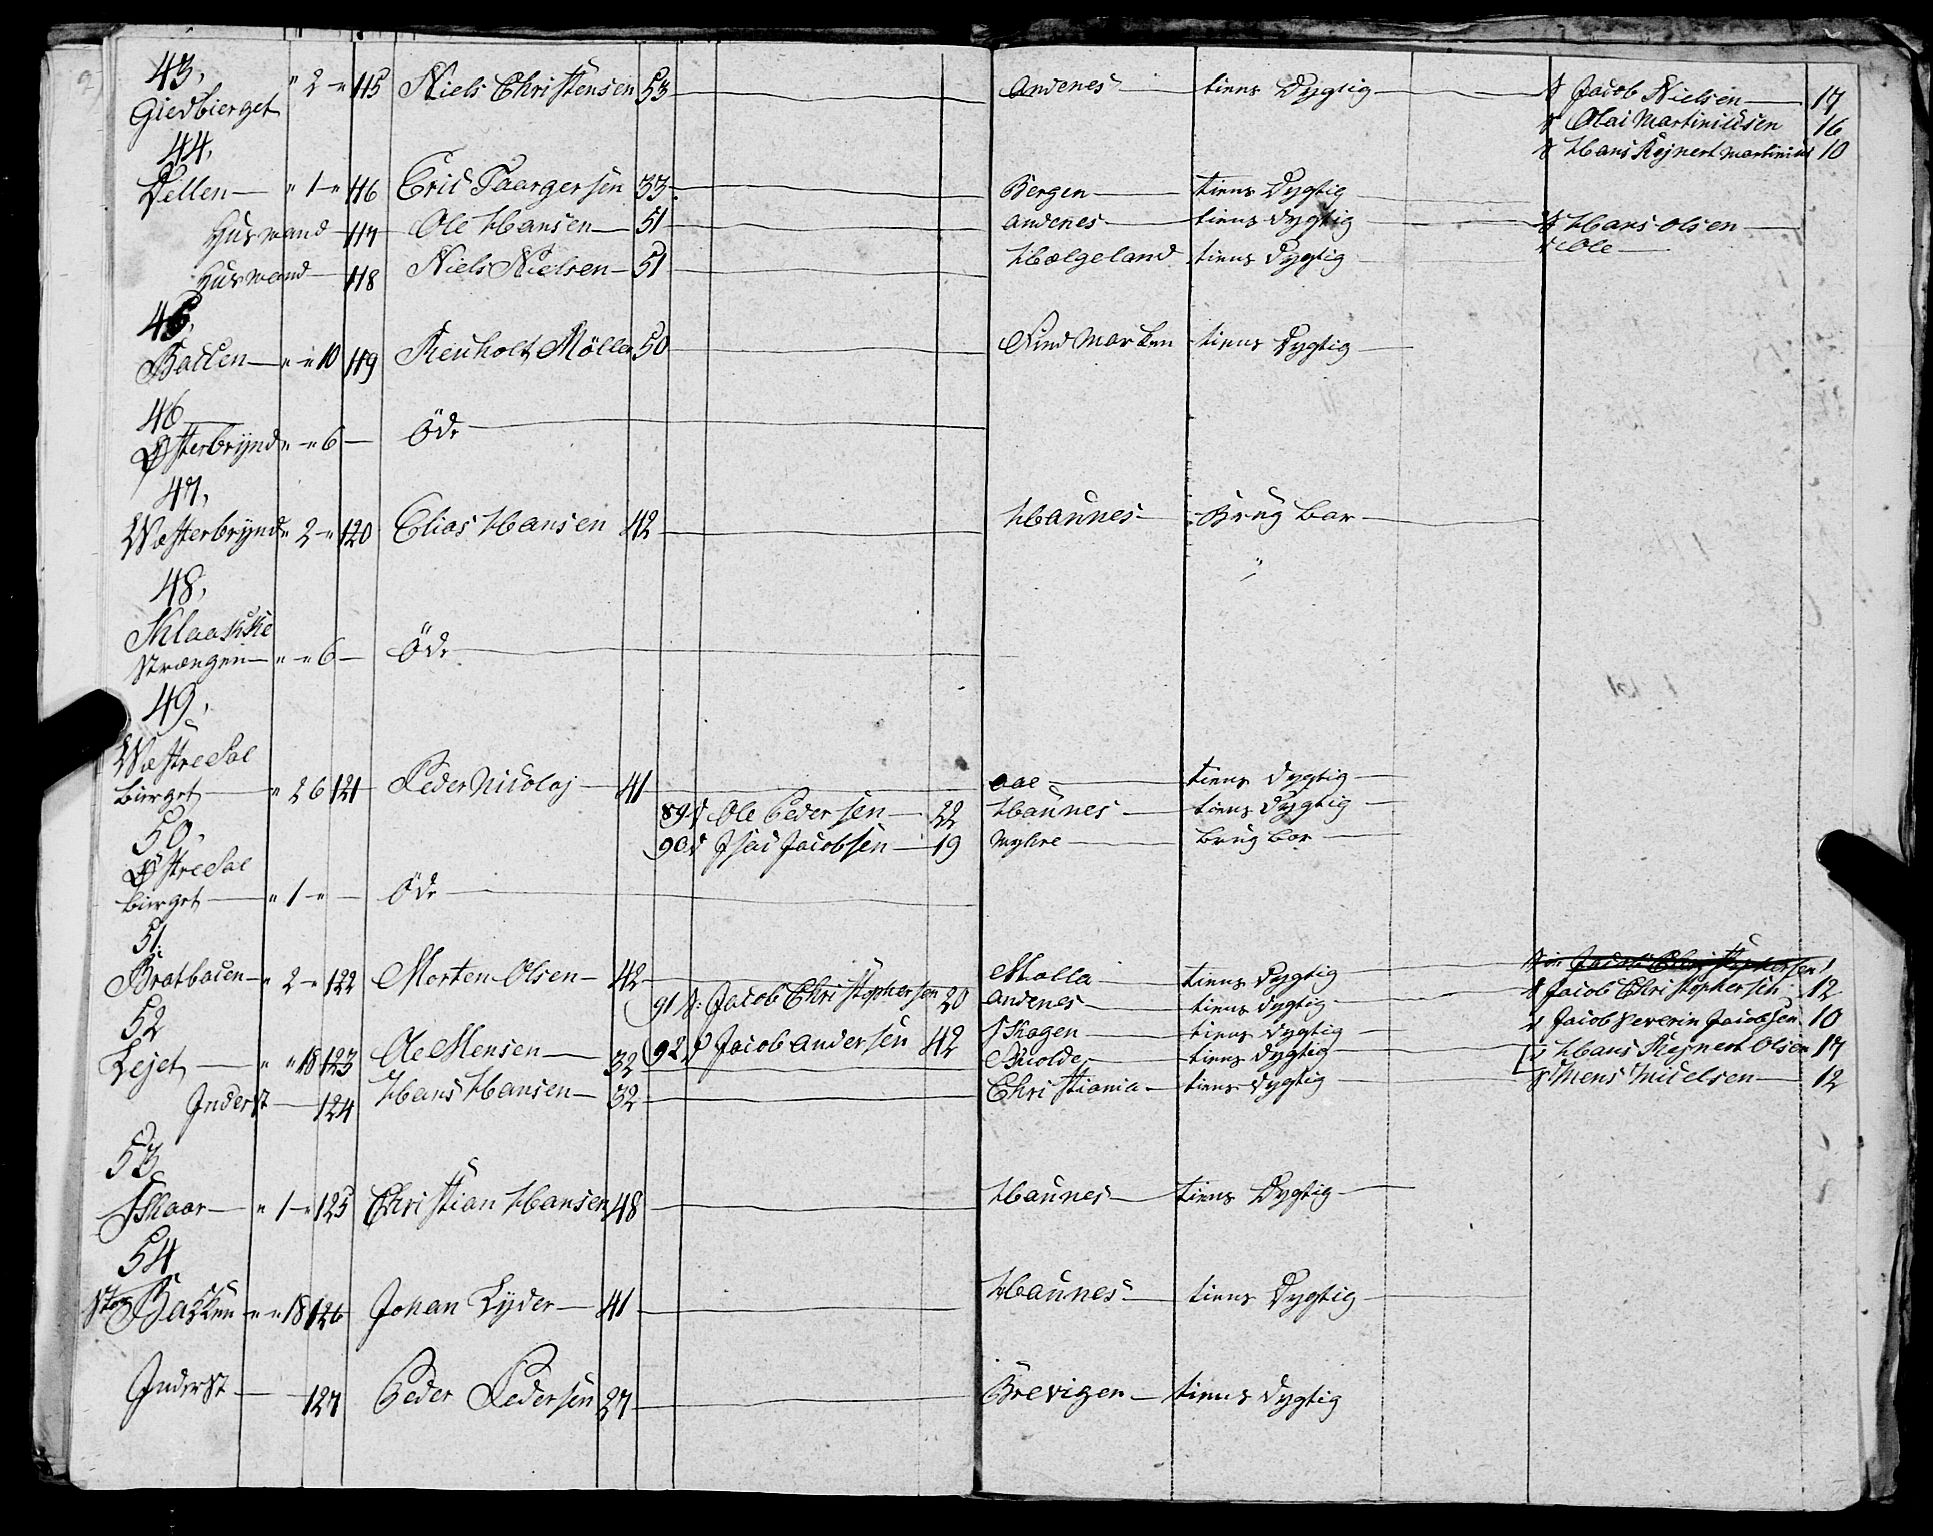 43,
Giedbierget " 2 " 115 Niels Christensen 53 Andenes tiens Dygtig S Jacob Nielsen 17
S Olai Martiniusen 16
44, S Hans Rejnert Martinius 10
Vellen " 1 " 116 Eric Taargersen 33 Bergen tiens Dygtig
Husmand 117 Ole Hansen 51 andenes tiens dygtig S Hans olsen
S Ole
Husmand 118 Niels Nielsen 51 Hælgeland tiens Dygtig
45,
Backen " " 10 119 Reinholt Möller 50 Find Marken tiens Dygtig
46
Østerbrÿnd " " 6 Öde
47,
Wæsterbrÿnd " 2 " 120 Elias Hansen 42 Haunes Brug bar
"
48,
Klaakske
Strængen " " 6 Öde
49,
Wæstre Sal
bierget " 2 6 121 Peder Nicolaj 41 aae tiens dygtig
89 S Ole Pedersen 22 Haunes tiens Dygtig
50, 90 S Isac Jacobsen 19 Myhre brug bar
Østre Sal
bierget " 1 " Öde
51.
Bratbacen " 2 " 122 Morten Olsen 42 Malla tiens Dygtig
91 S: Jacob Christophersen 20 andenes tiens dygtig S Jacob Christophersen 12
52 92 P Jacob andersen 42 Skagen tiens Dygtig S Jacob Severin Jacobsen 10
Lejet " " 18 123 Ole Mensen 32 Molde tiens dygtig S Hans Rejnert Olsen 17
Inderst 124 Hans Hansen 32 Christiania tiens dygtig S Mens Micelsen 12
53
Skaar " 1 " 125 Christian Hansen 48 Haunes tiens Dygtig
54
Stor Backen " " 18 126 Johan Lÿder 41 Haunes tiens Dygtig
Inderst 127 Peder Pedersen 27 Brevigen tiens dygtig